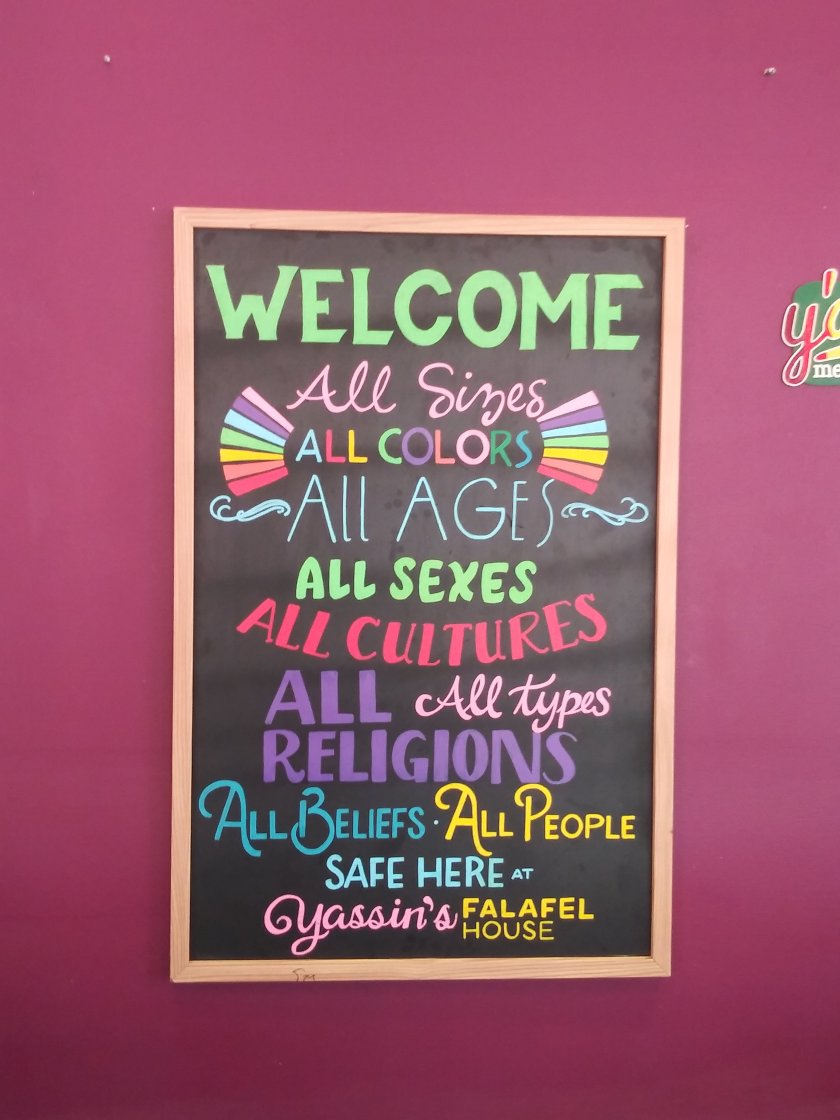 WELCOME
All Sizes
ALL COLORS
All AGES
ALL SEXES
ALL CULTURES
ALL All types
RELIGIONS
ALL BELIEFS · ALL PEOPLE
SAFE HERE AT
Yassin's FALAFEL
HOUSE